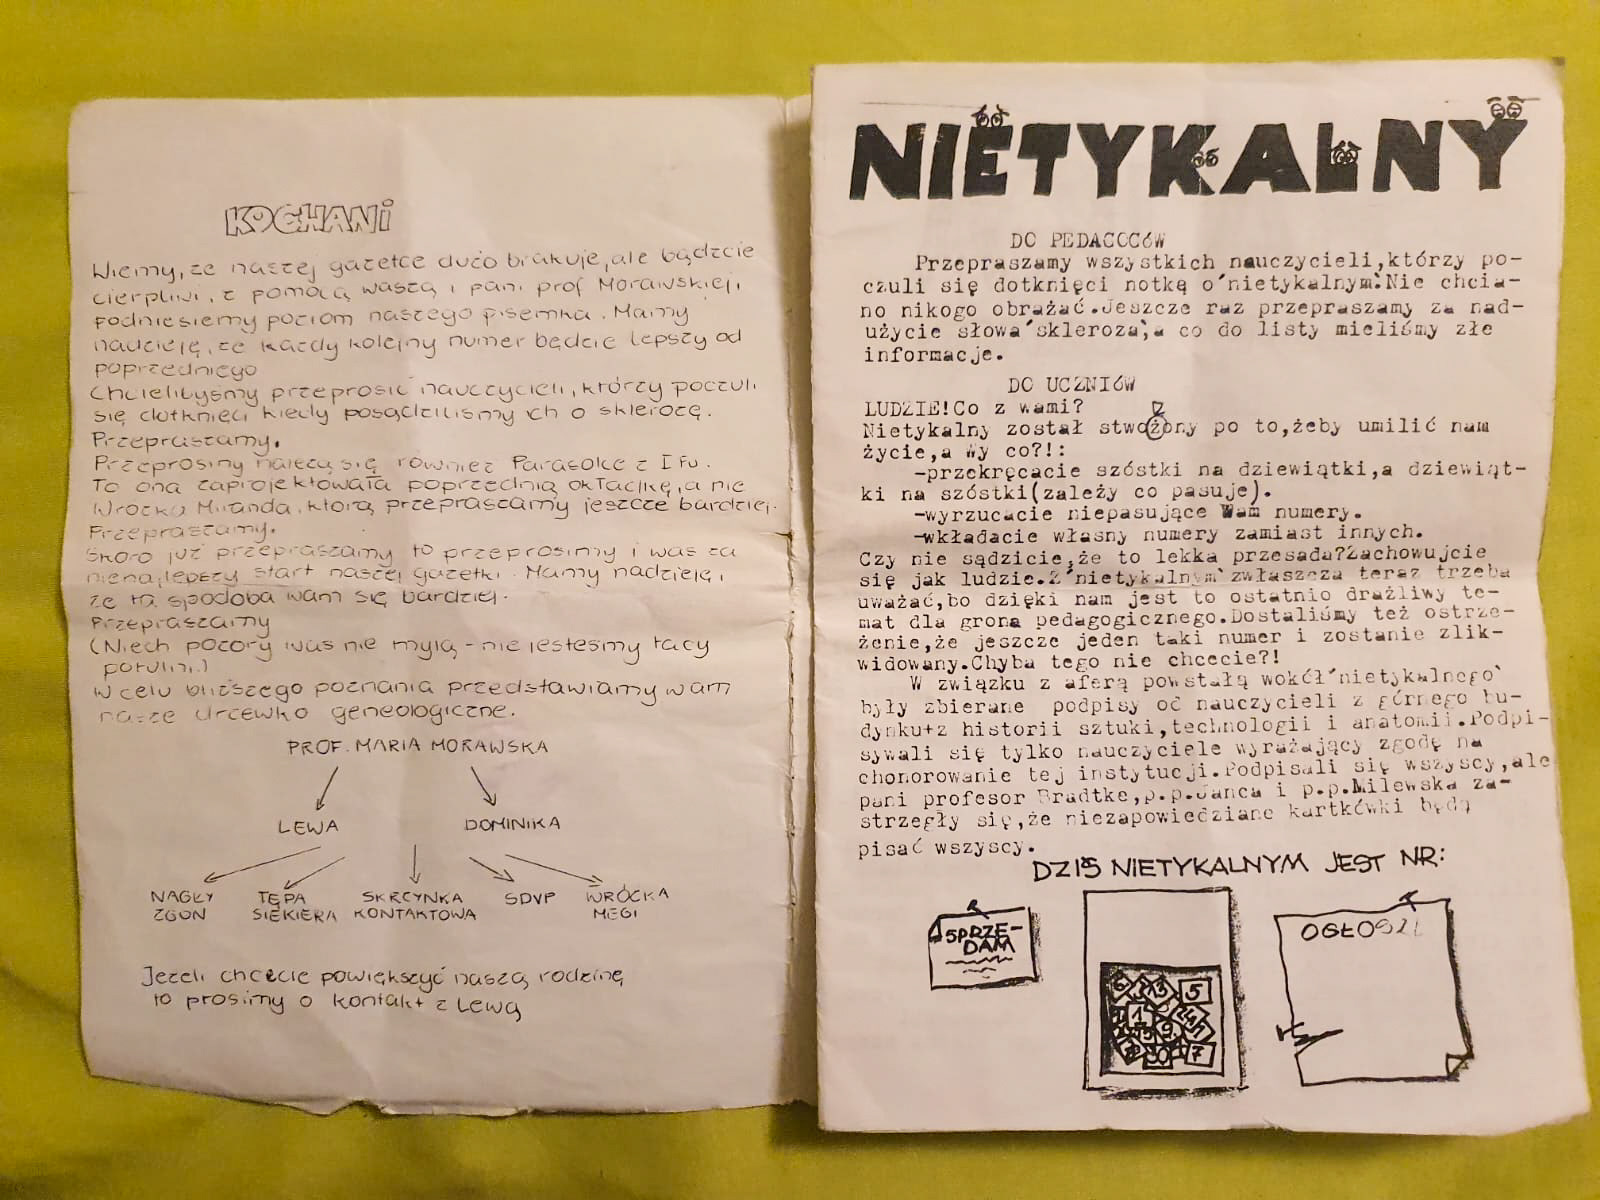 KOCHANi
Wiemy, że naszej gazetce dużo brakuje, ale bądźcie
cierpliwi, z pomocą waszą i pani prof Morawskiej,
podniesiemy poziom naszego pisemka. Mamy
nadzieję, że każdy kolejny numer będzie lepszy od
poprzedniego
Chcielibyśmy przeprosić nauczycieli, którzy poczuli
się dotknięci kiedy posądziliśmy ich o sklerozę.
Przepraszamy.
Przeprosiny należą się również Parasolce z I fu.
To ona zaprojektowała poprzednią okładkę, a nie
Wróżka Miranda, którą przepraszamy jeszcze bardziej.
Przepraszamy.
Skoro już przepraszamy to przeprosimy i was za
nienajlepszy start naszej gazetki. Mamy nadzieję,
że ta spodoba wam się bardziej.
Przepraszamy
(Niech pozory was nie mylą - nie jesteśmy tacy
potulni.)
W celu bliższego poznania przedstawiamy wam
nasze drzewko geneologiczne.
PROF. MARIA MORAWSKA
LEWA DOMINIKA
NAGŁY TĘPA SKRZYNKA SDVP WRÓŻKA
ZGON SIEKIERA KONTAKTOWA MEGI
Jeżeli chcecie powiększyć naszą rodzinę
to prosimy o kontakt z Lewą
NIETYKALNY
DO PEDAGOGÓW
Przepraszamy wszystkich nauczycieli,którzy po-
czuli się dotknięci notką o'nietykalnym'.Nie chcia-
no nikogo obrażać.Jeszcze raz przepraszamy za nad-
użycie słowa'skleroza',a co do listy mieliśmy złe
informacje.
DO UCZNIÓW
LUDZIE!Co z wami?
Nietykalny został stwożony po to,żeby umilić nam
życie,a Wy co?!:
-przekręcacie szóstki na dziewiątki,a dziewiąt-
ki na szóstki(zależy co pasuje).
-wyrzucacie niepasujące Wam numery.
-wkładacie własny numery zamiast innych.
Czy nie sądzicie,że to lekka przesada?Zachowujcie
się jak ludzie.Z'nietykalnym'zwłaszcza teraz trzeba
uważać,bo dzięki nam jest to ostatnio drażliwy te-
mat dla grona pedagogicznego.Dostaliśmy też ostrze-
żenie,że jeszcze jeden taki numer i zostanie zlik-
widowany.Chyba tego nie chcecie?!
W związku z aferą powstałą wokół'nietykalnego'
były zbierane podpisy od nauczycieli z górnego bu-
dynku+z historii sztuki,technologii i anatomii.Podpi-
sywali się tylko nauczyciele wyrażający zgodę na
chonorowanie tej instytucji.Podpisali się wszyscy,ale
pani profesor Bradtke,p.p.Janca i p.p.Milewska za-
strzegły się,że niezapowiedziane kartkówki będą
pisać wszyscy.
DZIŚ NIETYKALNYM JEST NR:
SPRZE-
DAM
OGŁOSZ
6 13 5
1 9
30 7